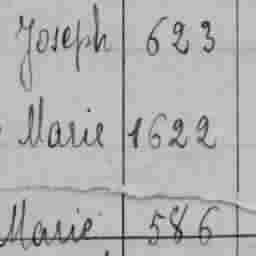 Joseph 623
Marie 1622
Marie 586